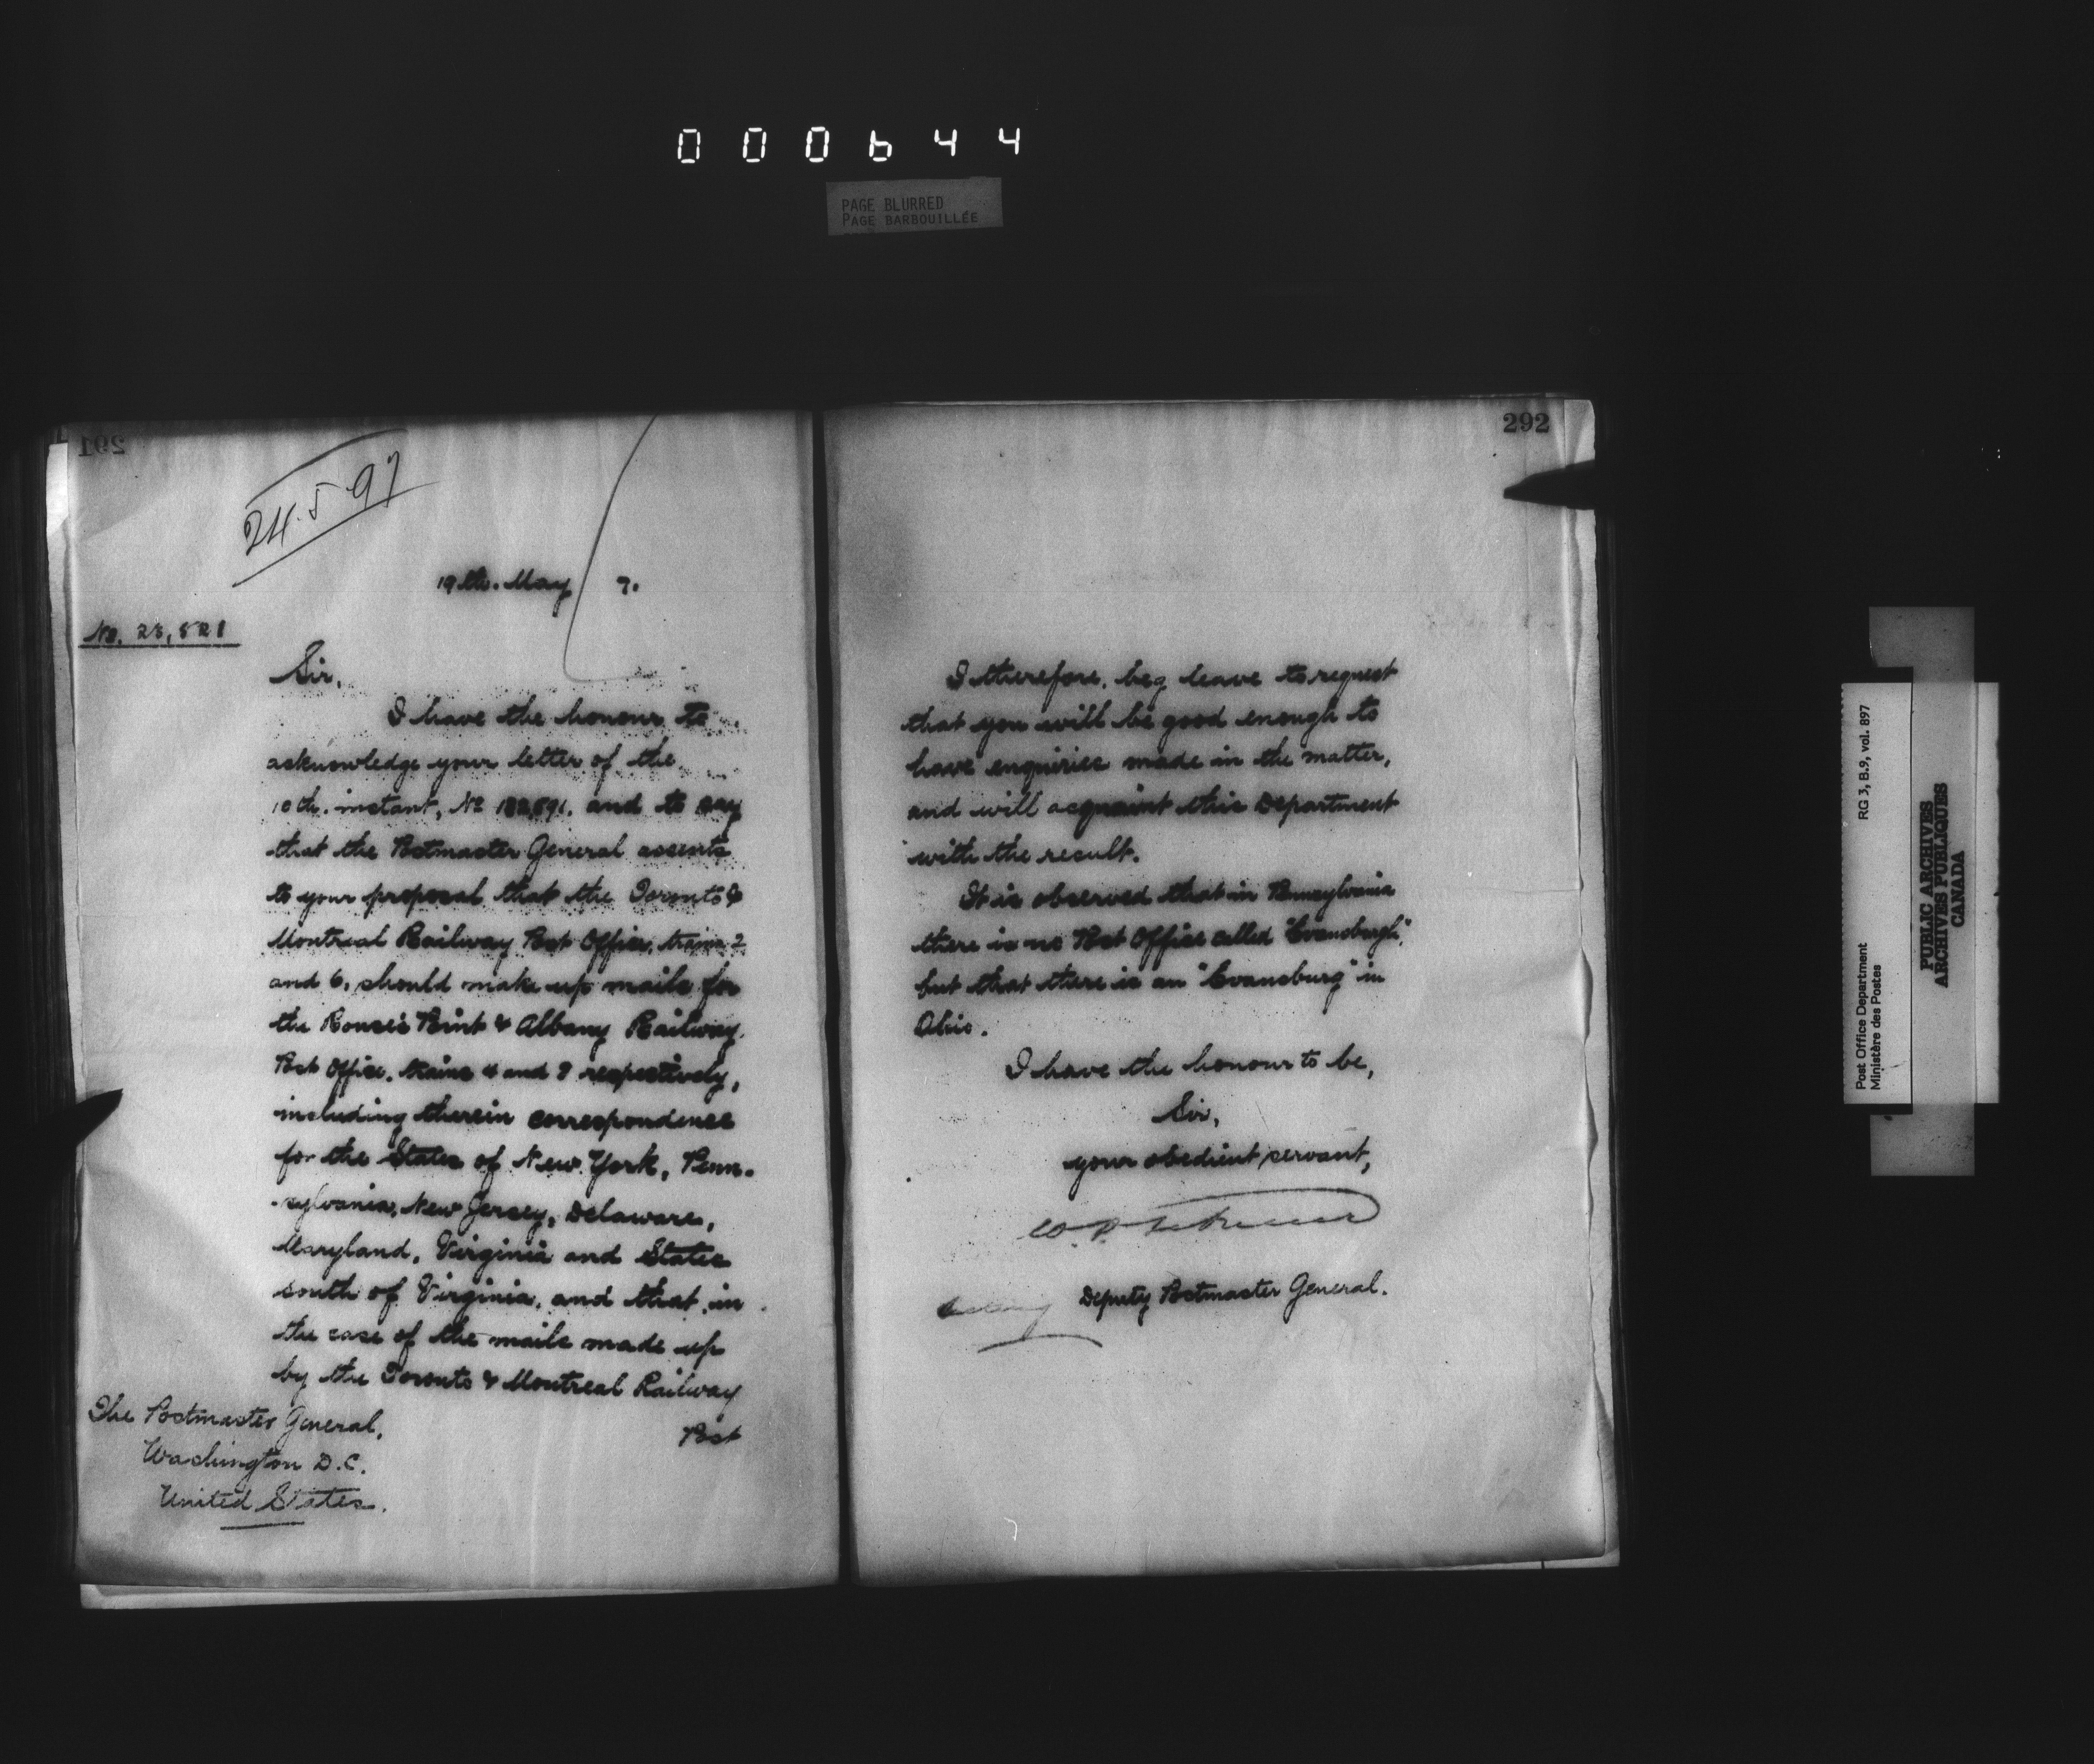 000644
PAGE BLURRED
PAGE BARBOUILLÉE
291
24.5.97
19th. May 7.
No. 23,521
Sir,
I have the honour to
acknowledge your letter of the
10th. instant, No and to say
that the Postmaster General assents
to your proposal that the Toronto &
Montreal Railway Post Office, trains 2
and 6, should make up mails for
the Rouse's Point & Albany Railway
Post Office, trains 4 and 8 respectively,
including therein correspondence
for the States of New York, Penn-
-sylvania, New Jersey, Delaware,
Maryland, Virginia and States
south of Virginia, and that, in
the case of the mails made up
by the Toronto & Montreal Railway
Post
The Postmaster General,
Washington D.C.
United States.
292
I therefore, beg leave to request
that you will be good enough to
have enquiries made in the matter,
and will acquaint this Department
with the result.
It is observed that in Pennsylvania
there is no Post Office called "Evansburgh",
but that there is an "Evansburg" in
Ohio.
I have the honour to be,
Sir,
your obedient servant,
Deputy Postmaster General.
Post Office Department RG 3, B.9, vol. 897
Ministère des Postes
PUBLIC ARCHIVES
ARCHIVES PUBLIQUES
CANADA